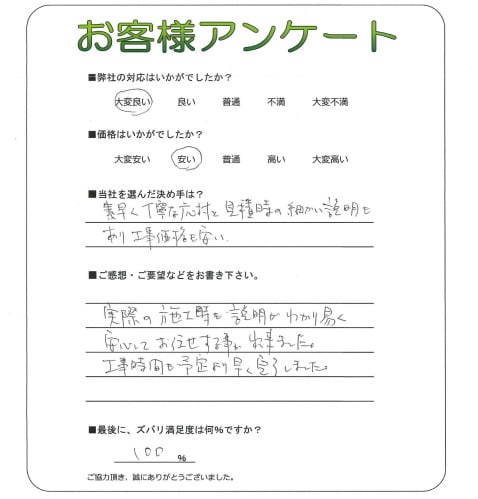 お客様アンケート
■弊社の対応はいかがでしたか？
大変良い 良い 普通 不満 大変不満
■価格はいかがでしたか？
大変安い 安い 普通 高い 大変高い
■当社を選んだ決め手は？
素早く丁寧な応対と見積時の細かい説明も
あり工事価格も安い.
■ご感想・ご要望などをお書き下さい。
実際の施工時も説明がわかり易く
安心してお任せする事が出来ました。
工事時間も予定より早く完了しました。
■最後に、ズバリ満足度は何%ですか？
100 %
ご協力頂き、誠にありがとうございました。